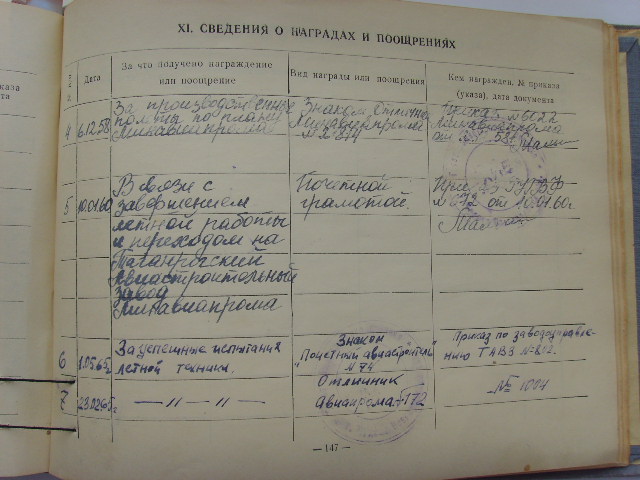 XI. СВЕДЕНИЯ О НАГРАДАХ И ПООЩРЕНИЯХ
Дата
За что получено награждение
или поощрение
Вид награды или поощрения
Кем награжден, № приказа
(указа), дата документа
4
6.12.58
За производственные
полёты по плану
Минавиапрома
Знаком Отличник
Минавиапрома
Приказ № 6022
Минавиапрома
5
10.01.60
В связи с
завершением
лётной работы
и переходом на
Таганрогский
Авиастроительный
завод
Минавиапрома
Почетной
грамотой.
№ 672 от 10.01.60г
6
За успешные испытания
летной техники.
Знаком
"Почетный авиастроитель"
N 74
Приказ по заводоуправле-
нию ТАВЗ
7
— 〃 — 〃 —
Отличник
Авиапрома
№ 1094
— 147 —